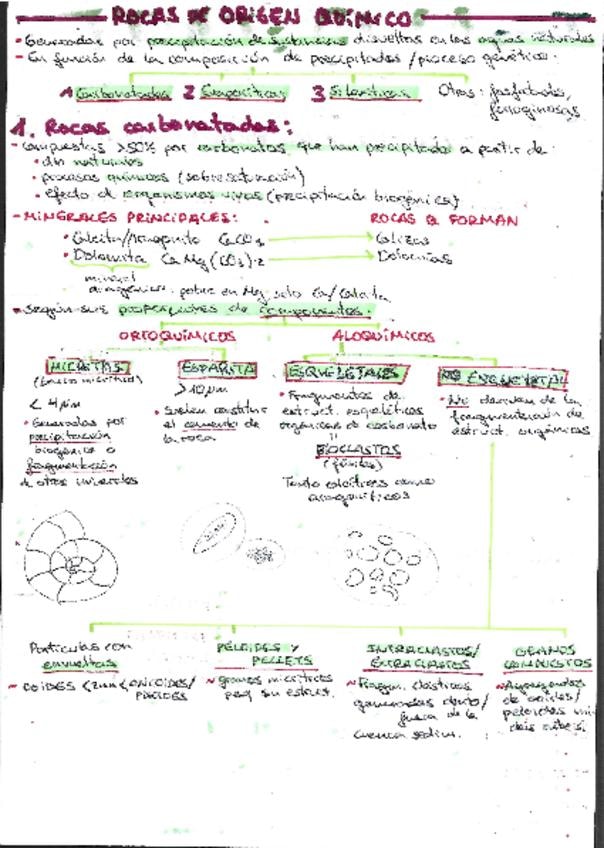 ROCAS DE ORIGEN QUÍMICO
- Generadas por precipitación de sustancias disueltas en las aguas naturales
- En función de la composición de precipitados/proceso genético:
1 Carbonatadas 2 Evaporíticas 3 Silíceas Otras: fosfatadas,
ferruginosas
1. Rocas carbonatadas:
- Compuestas >50% por carbonatos que han precipitado a partir de:
• procesos químicos (sobresaturación)
• efecto de organismos vivos (precipitación biogénica)
- MINERALES PRINCIPALES: ROCAS Q FORMAN
• Calcita/Aragonito CaCO3 Calizas
• Dolomita CaMg(CO3)2 Dolomías
mineral
pobre en Mg solo Ca/Calcita
- Según sus proporciones de componentes:
ORTOQUÍMICOS ALOQUÍMICOS
MICRITAS ESPARITA ESQUELETALES NO ESQUELETAL
< 4μm
• Generadas por
precipitación
biogénica o
fragmentación
de otros minerales
> 10μm
• Suelen constituir
el cemento de
la roca
• Fragmentos de
estruct. esqueléticas
orgánicas de carbonato
BIOCLASTOS
(fósiles)
Tanto calcíticos como
aragoníticos
• No derivan de la
fragmentación de
estruct. orgánicas
Partículas con
envueltas
~ OOIDES <2mm< ONCOIDES/
PISOIDES
PELOIDES Y
PELLETS
~ granos micríticos
peq sin estruct.
INTRACLASTOS/
EXTRACLASTOS
~ Fragm. clásticos
generados dentro/
fuera de la
cuenca sedim.
GRANOS
COMPUESTOS
~ Agregados
de ooides/
peloides